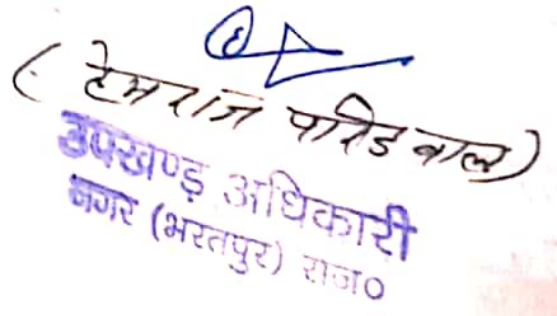 ( हेमराज परिडवाल )
उपखण्ड अधिकारी
नगर (भरतपुर) राज०